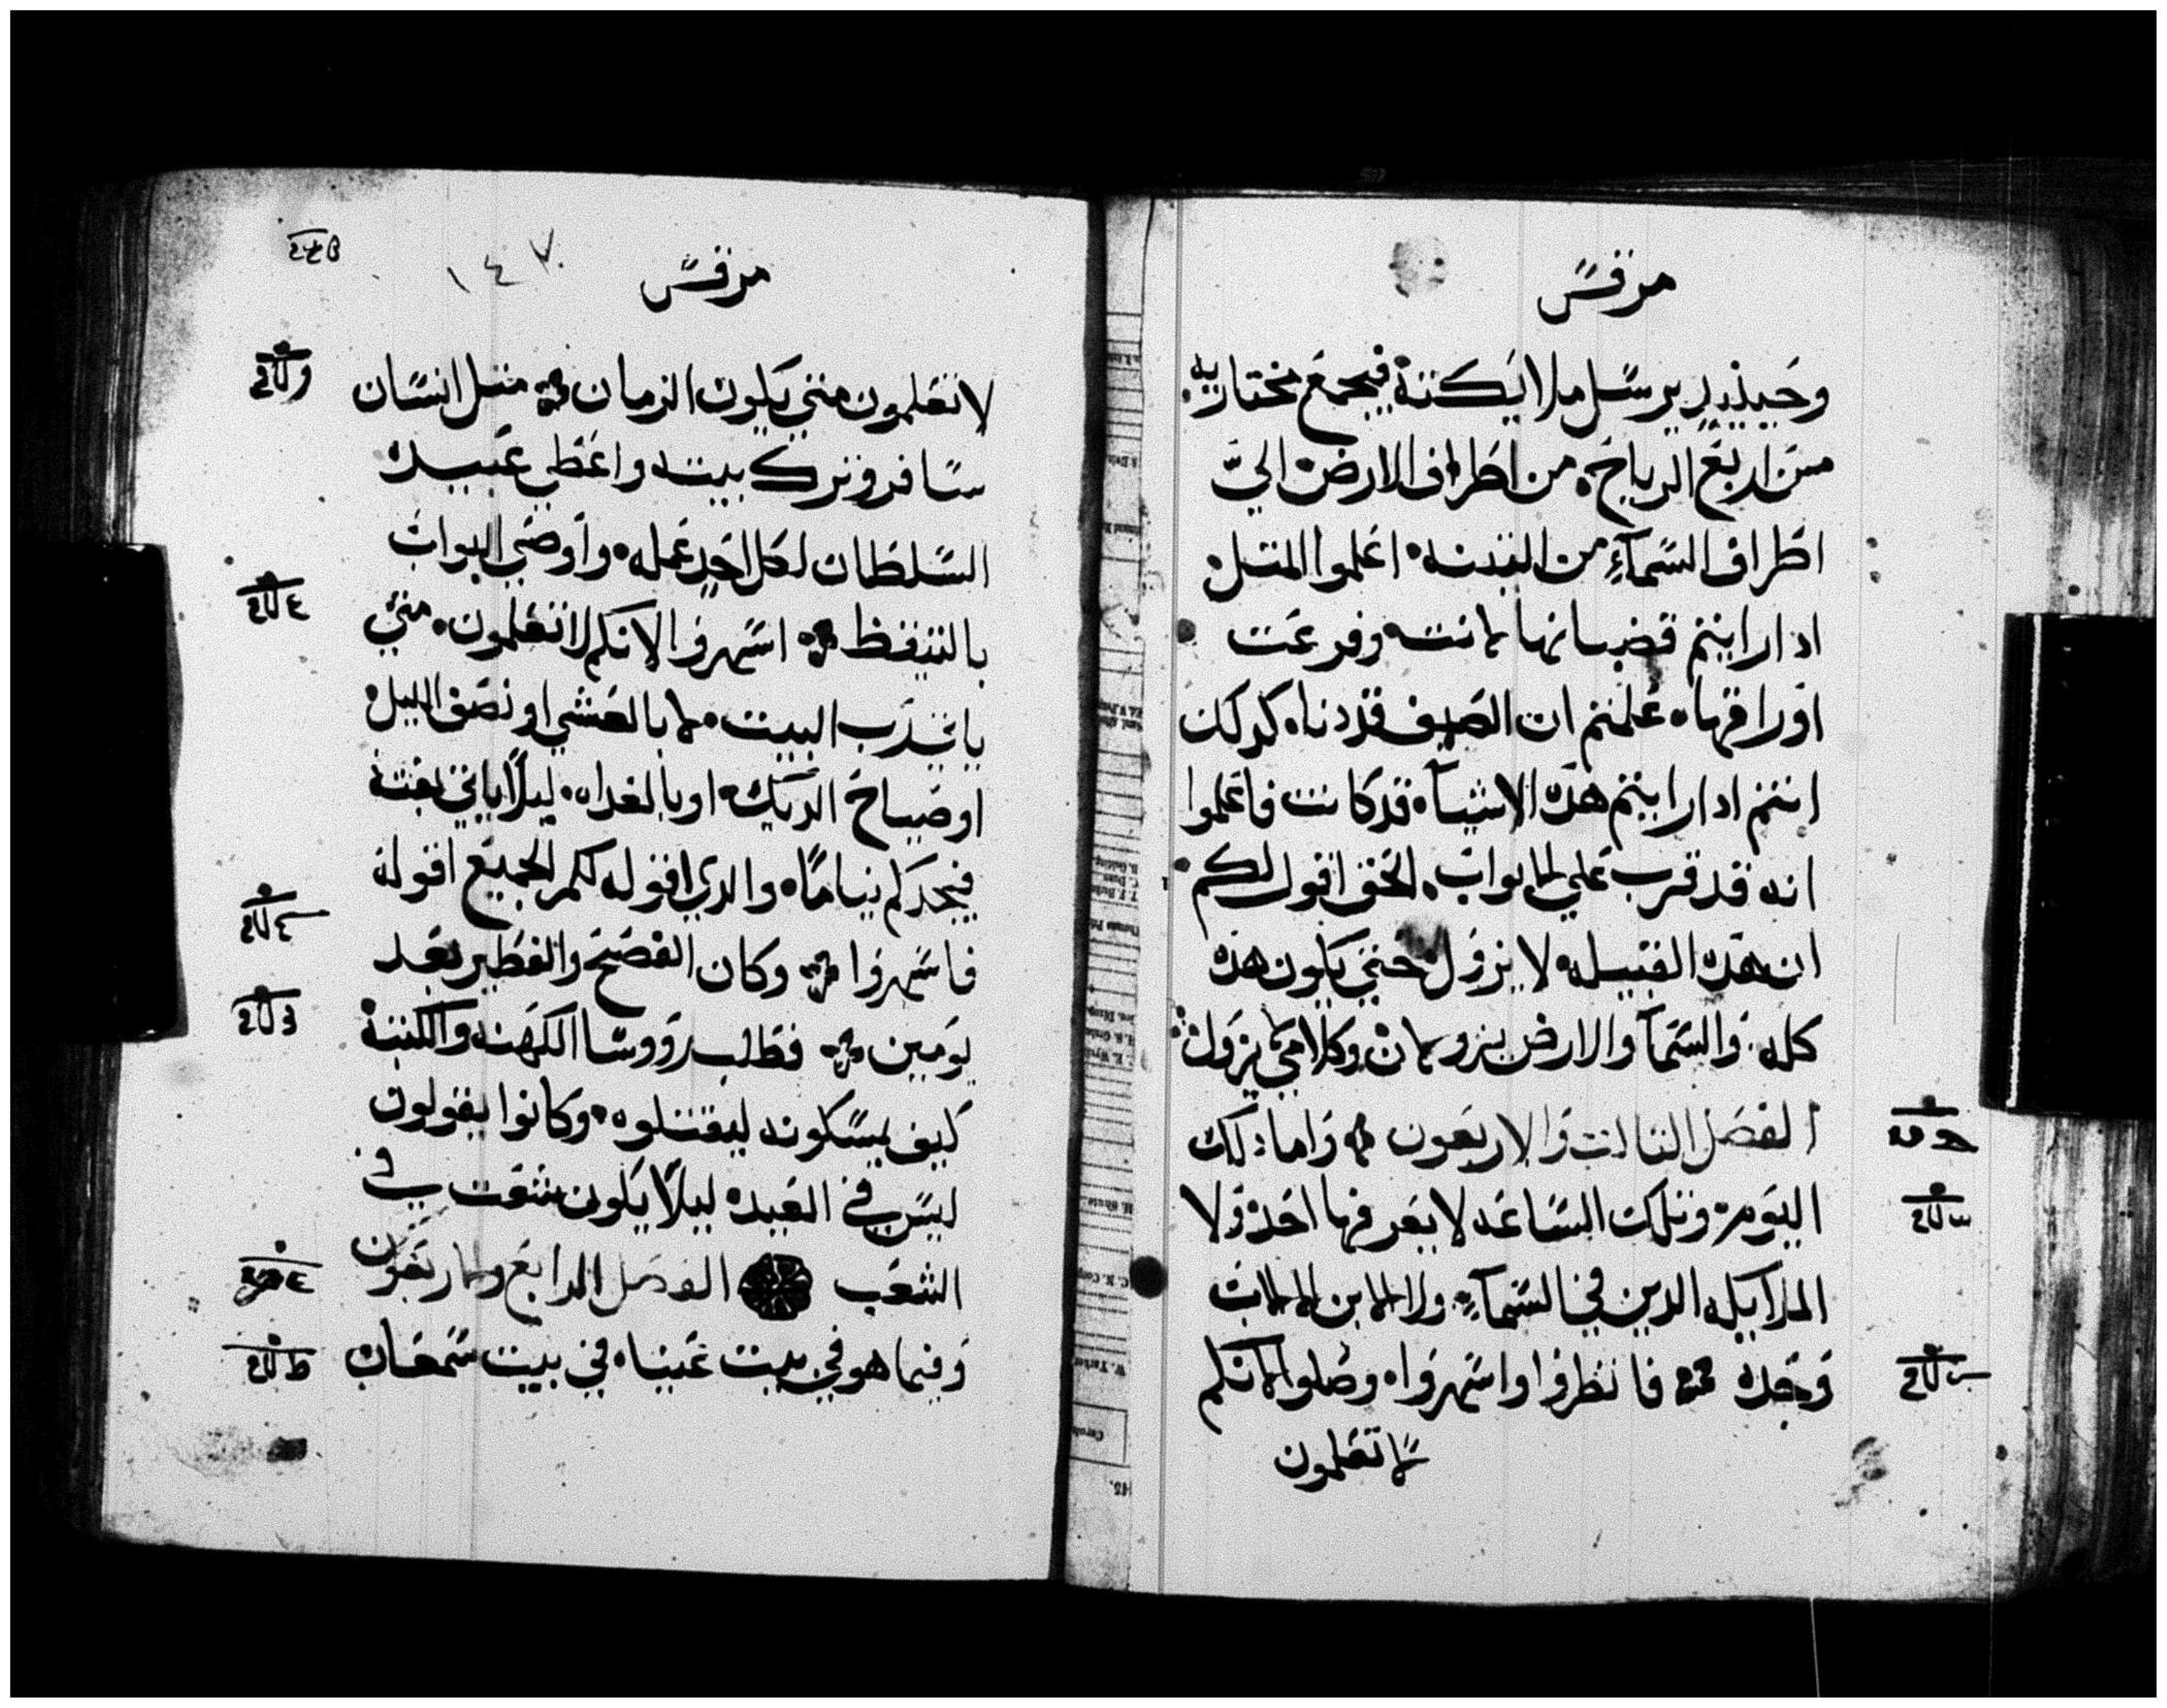 مرقس
وحينيذ يرسل ملايكته فيجمع مختاريه
من اربع الرياح من اطراف الارض الي
اطراف السماء من التينه اعلموا المتل
ادا رايتم قضبانها لانت وفرعت
اوراقها علمتم ان الصيف قد دنا كدلك
انتم ادا رايتم هده الاشيا قد كانت فاعلموا
انه قد قرب علي الابواب الحق اقول لكم
ان هده القبيله لا يزول حتي يكون هده
كله والسما والارض يزولان وكلامي لا يزول
الفصل التالت والاربعون واما دلك
اليوم وتلك الساعه لا يعرفها احد ولا
الملايكه الدين في السماء ولا الابن الا الاب
وحده فانظروا واسهروا وصلوا لانكم
لا تعلمون
مرقس
١٤٧
لا تعلمون متي يكون الزمان متل انسان
سافر وترك بيته واعطي عبيده
السلطان لكل احد عمله واوصي البواب
بالتيقظ اسهروا الانكم لا تعلمون متي
ياتي رب البيت لا بالعشي او نصف الليل
او صياح الديك او بالغداه ليلا ياتي بغته
فيجدكم نياما والدي اقوله لكم للجميع اقوله
فاسهروا وكان الفصح والفطير بعد
يومين فطلب رووسا الكهنه والكتبة
كيف يمسكونه ليقتلوه وكانوا يقولون
ليس في العيد ليلا يكون شغب في
الشعب الفصل الرابع والاربعون
وفيما هو في بيت عنيا في بيت سمعان